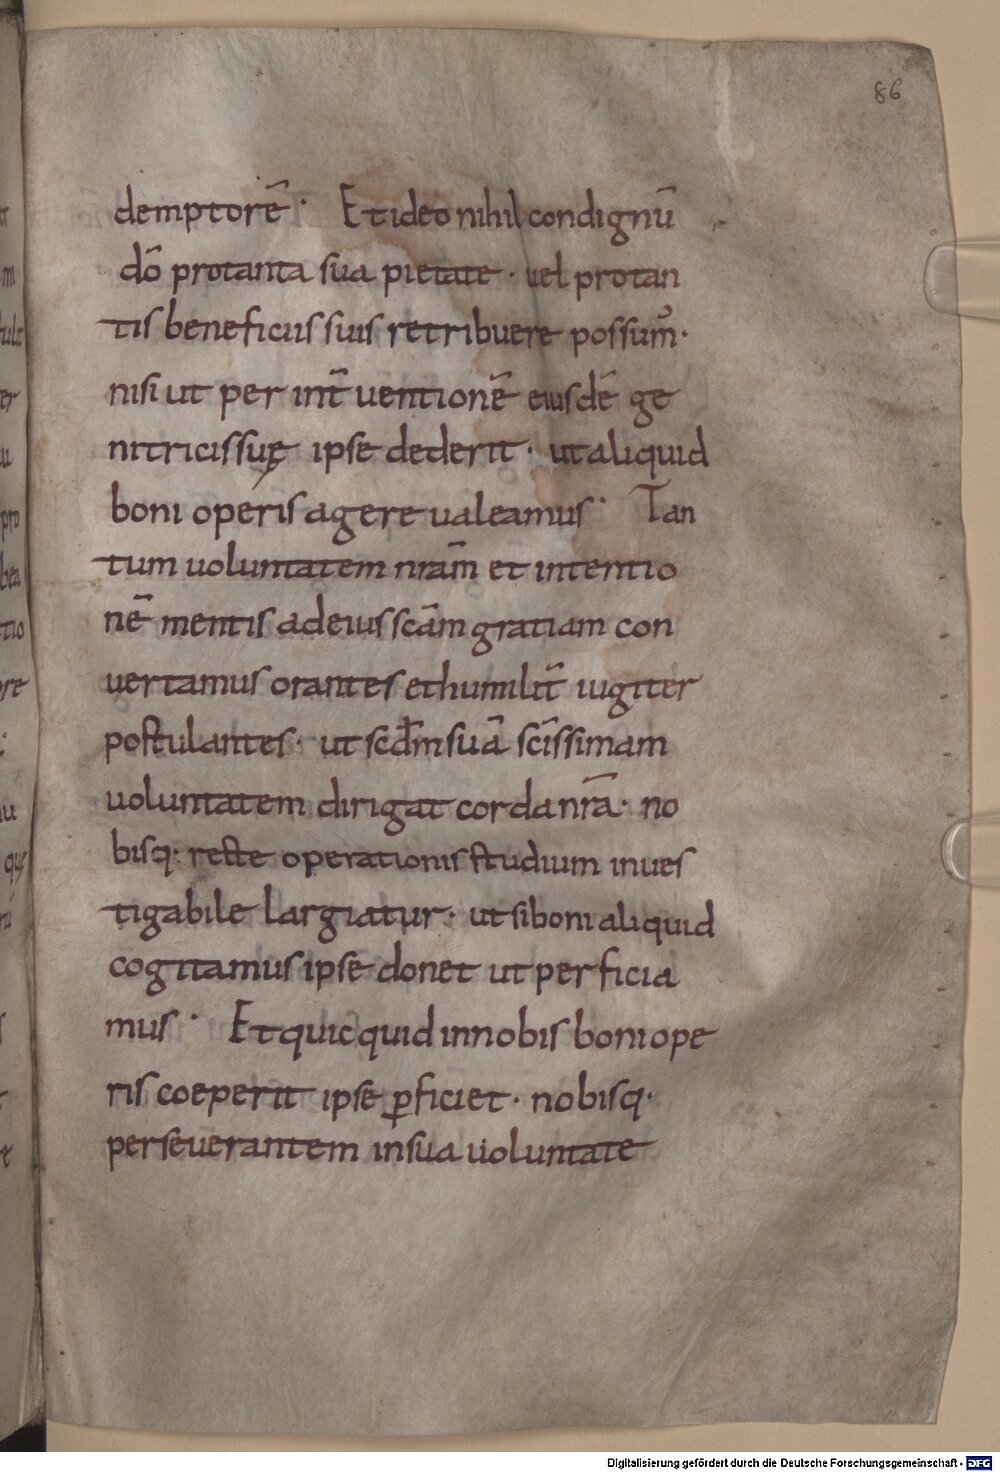 86
demptorē· Et ideo nihil condignū
dō pro tanta sua pietate· uel pro tan
tis beneficiis suis retribuere possum᷒·
nisi ut per int̄ uentionē eiusdē ge
nitricis suę ipse dederit· ut aliquid
boni operis agere ualeamus· Tan
tum uoluntatem nr̄am et intentio
nē mentis ad eius sc̄am gratiam con
uertamus orantes et humilit̄ iugiter
postulantes· ut scd̄m suā sc̄issimam
uoluntatem dirigat corda nr̄a· no
bisq· recte operationis studium inues
tigabile largiatur· ut si boni aliquid
cogitamus ipse donet ut perficia
mus· Et quicquid in nobis boni ope
ris coeperit ipse ꝑficiet· nobisq·
perseuerantem in sua uoluntate
Digitalisierung gefördert durch die Deutsche Forschungsgemeinschaft - DFG